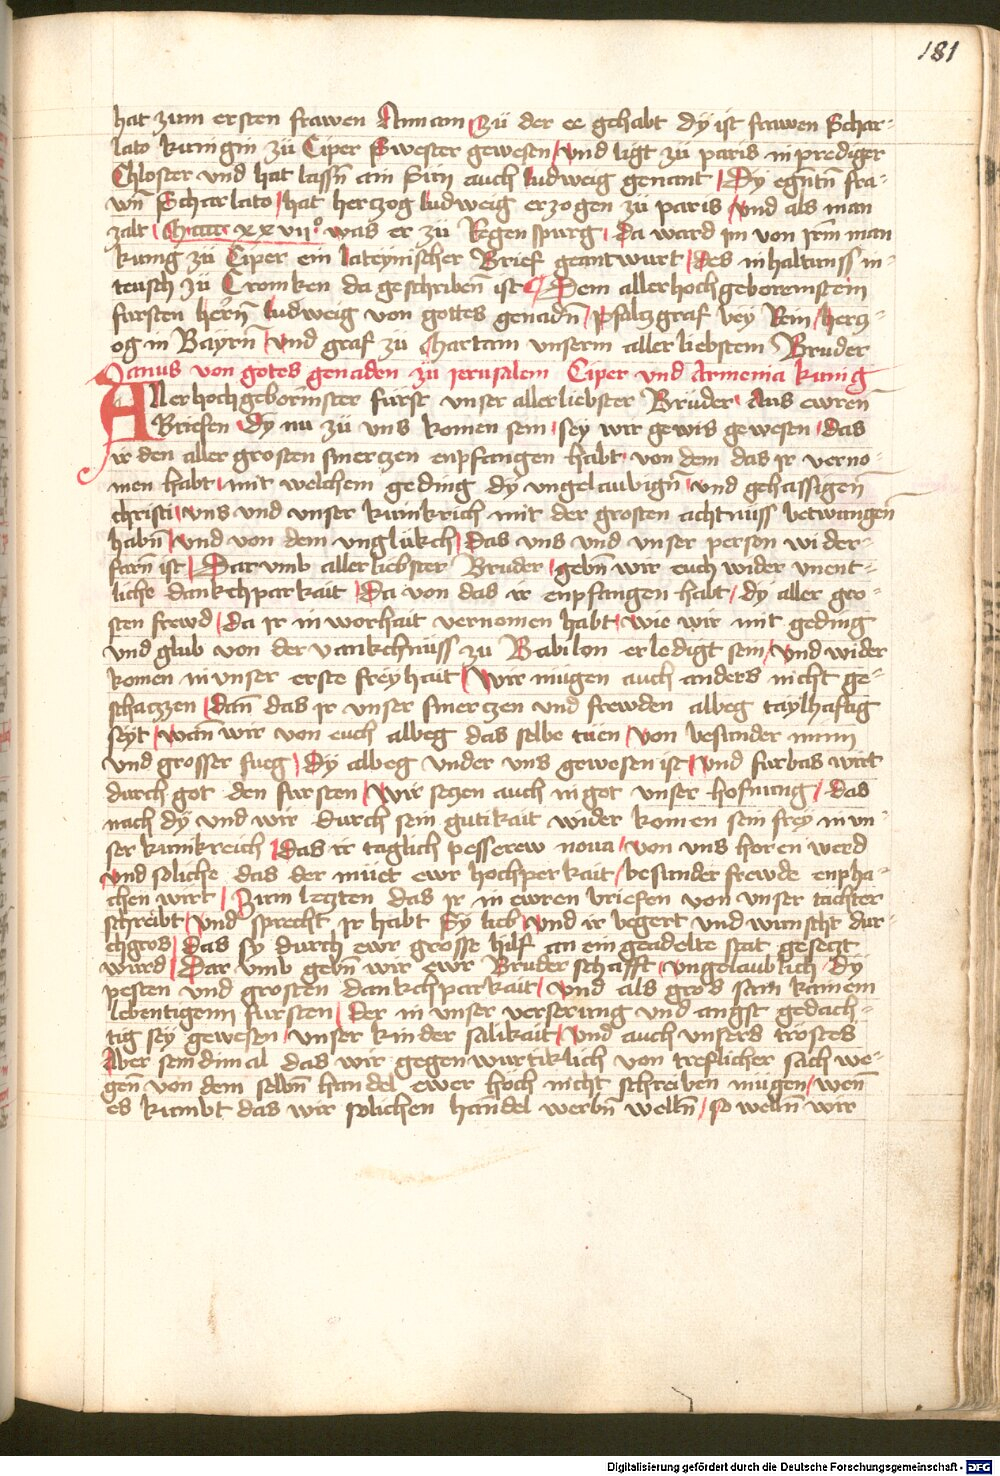 181
hat zum ersten frawen Annam zü der ee gehabt dÿ ist frawen Schar-
lato kunigin zü Ciper Swester gewesen / und ligt zü paris in prediger
Chloster und hat lassn̄ ain Sun auch ludweig genant / Dy egn̄tn̄ fra-
wn̄ Scharlato / hat herczog ludweig erzogen zü paris und als man
zalt xxvii° was er zü Regenspurg / da ward im von irm̄ man
kunig zü Ciper ein lateynischer Brief geantwurt / des inhaltnuss in
teusch zü Croniken da geschriben̄ ist Dem allerhochgeborennstem
fursten hern̄ ludweig von gottes genadn̄ / pfalczgraf bey Rein / hercz-
og in Bayrn̄ / und graf zü Martani unserm aller liebstem Bruder
Janus von gotes genaden zü jerusalem Ciper und Armenia kunig
Allerhochgeborinster fürst unser allerliebster Brüder Aus ewren̄
Briefen dÿ nu zü uns komen sein / sey wir gewis gewesen / das
ir den aller grosten smerczen enpfangen habt / von dem das ir verno-
men habt / mit welchem geding dÿ ungelaubign̄ / und gehassigen̄
christi / uns und unser kunikrich mit der grosten achtnüss betwungen̄
habn̄ / und von dem unglükch / das uns und unser person wider-
farn̄ ist / Darumb allerliebster Bruder / gebn̄ wir euch wider unent-
liche dankchparkait / Da von das ir enpfangen habt / dÿ aller gro-
sten frewd / da ir in worhait vernomen habt / wie wir mit geding
und glub von der vankchnüss zu Babilon erledigt sein / und wider
komen in unser erste freÿhait / Wir mügen auch anders nicht ge-
schaczen / dan̄ das ir unser smerczen und frewden albeg taylhaftig
seÿt / wan̄ wir von euch albeg das selbe tüen / von besunder minn
und grosser fueg / dÿ albeg under uns gewesen ist / und furbas wirt
durch got den fursten / Wir seczen auch in got unser hofnung / das
nach dÿ und wir durch sein gutikait wider komen sein frey in un-
ser kunikreich / das ir taglich pesserew noua / von uns horen werd
und soliche das der müet ewr hochperkait / besunder frewde enpha-
chen wirt / Zum leczten das ir in ewren briefen von unser tachter
schreibt / und sprecht ir habt sy lieb / und ir begert und wunscht dur-
chgros / das sy durch ewr grosse hilf an ein geadelte stat geseczt
würd / Darumb gebn̄ wir ewr Bruderschafft / ungelaublich / dÿ
pesten und grosten dankchparkait / und als gros sam kainem
lebentigenn fursten / der in unser verserung und angst gedach-
tig seÿ gewesen / unser kinder salikait / und auch unsers trostes
Aber seindmal das wir gegenwurtiklich von treflicher sach we-
gen̄ von dem selbn̄ handel ewer hoch nicht schreiben mügen / wen̄
es kumbt das wir solichen handel werbn̄ welln̄ / so welln̄ wir
Digitalisierung gefördert durch die Deutsche Forschungsgemeinschaft - DFG